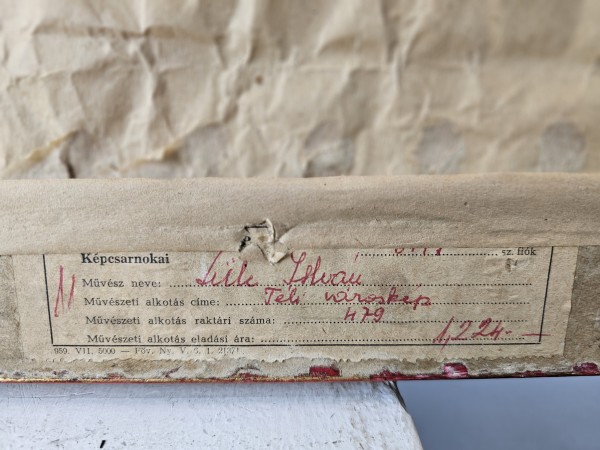 Képcsarnokai sz. fiók
Művész neve: István
Művészeti alkotás címe: Téli városkép
Művészeti alkotás raktári száma: 479
Művészeti alkotás eladási ára: 1,224.—
959. VII. 5000 — Föv. Ny. V.